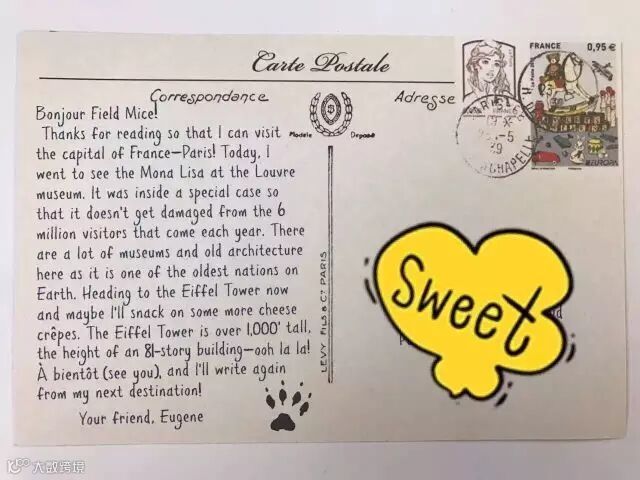 Carte Postale
Correspondance
Adresse
Modele
Deposé
Bonjour Field Mice!
Thanks for reading so that I can visit
the capital of France—Paris! Today, I
went to see the Mona Lisa at the Louvre
museum. It was inside a special case so
that it doesn't get damaged from the 6
million visitors that come each year. There
are a lot of museums and old architecture
here as it is one of the oldest nations on
Earth. Heading to the Eiffel Tower now
and maybe I'll snack on some more cheese
crêpes. The Eiffel Tower is over 1,000' tall,
the height of an 81-story building—ooh la la!
À bientôt (see you), and I'll write again
from my next destination!
Your friend, Eugene
LEVY FILS & Cie PARIS
FRANCE 0,95 €
EUROPA
CHAPELLE
Sweet
大数跨境